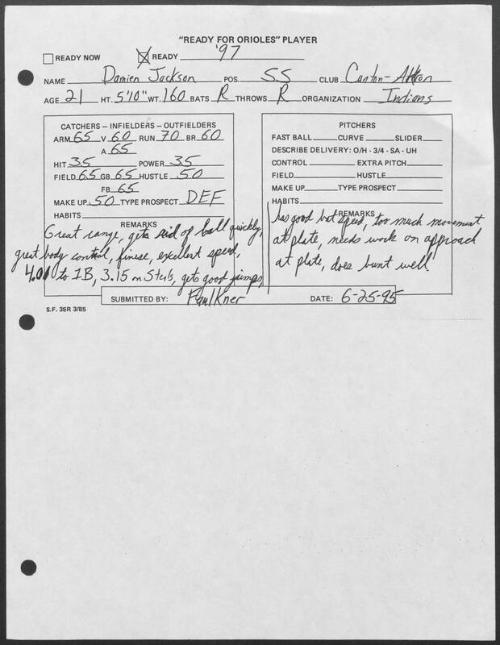 "READY FOR ORIOLES" PLAYER
READY NOW READY '97
NAME Damien Jackson POS. SS CLUB Canton-Akron
AGE 21 HT. 5'10" WT. 160 BATS R THROWS R ORGANIZATION Indians
CATCHERS — INFIELDERS — OUTFIELDERS
ARM 65 V 60 RUN 70 BR 60
A 65
HIT 35 POWER 35
FIELD 65 GB 65 HUSTLE 50
FB 65
MAKE UP 50 TYPE PROSPECT DEF
HABITS
REMARKS
Great range, gets rid of ball quickly,
great body control, finese, excellent speed,
4.01 to 1B, 3.15 on Steals, gets good jumps
PITCHERS
FAST BALL CURVE SLIDER
DESCRIBE DELIVERY: O/H - 3/4 - SA - UH
CONTROL EXTRA PITCH
FIELD HUSTLE
MAKE UP TYPE PROSPECT
HABITS
REMARKS
has good bat speed, too much movement
at plate, needs work on approach
at plate, does bunt well
SUBMITTED BY: Faulkner DATE: 6-25-95
S.F. 35R 3/85